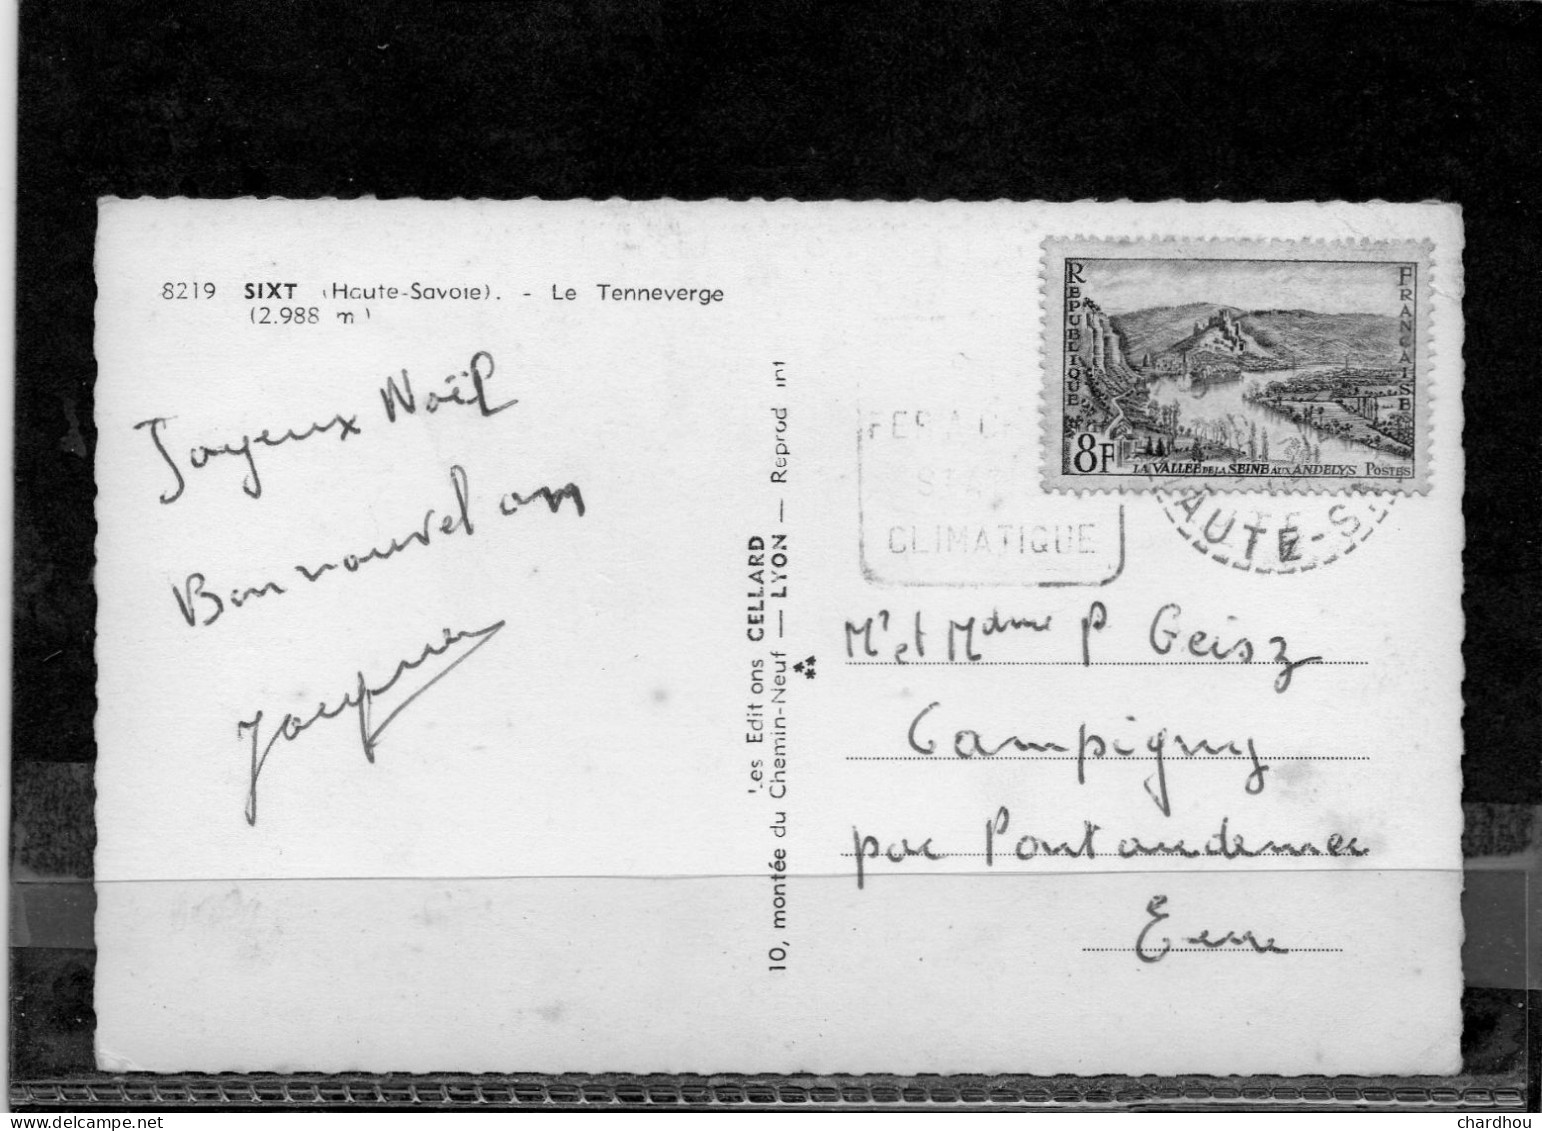 8219 SIXT (Haute-Savoie). - Le Tenneverge
(2.988 m)
Joyeux Noël
Bon nouvel an
Les Editions CELLARD
10, montée du Chemin-Neuf — LYON — Reprod int
REPUBLIQUE
FRANCAISE
8F
LA VALLEE DE LA SEINE AUX ANDELYS POSTES
FER A
CLIMATIQUE
HAUTE-S
Mr et Mdme P Geisz
Campigny
par Pontaudemer
Eure
chardhou